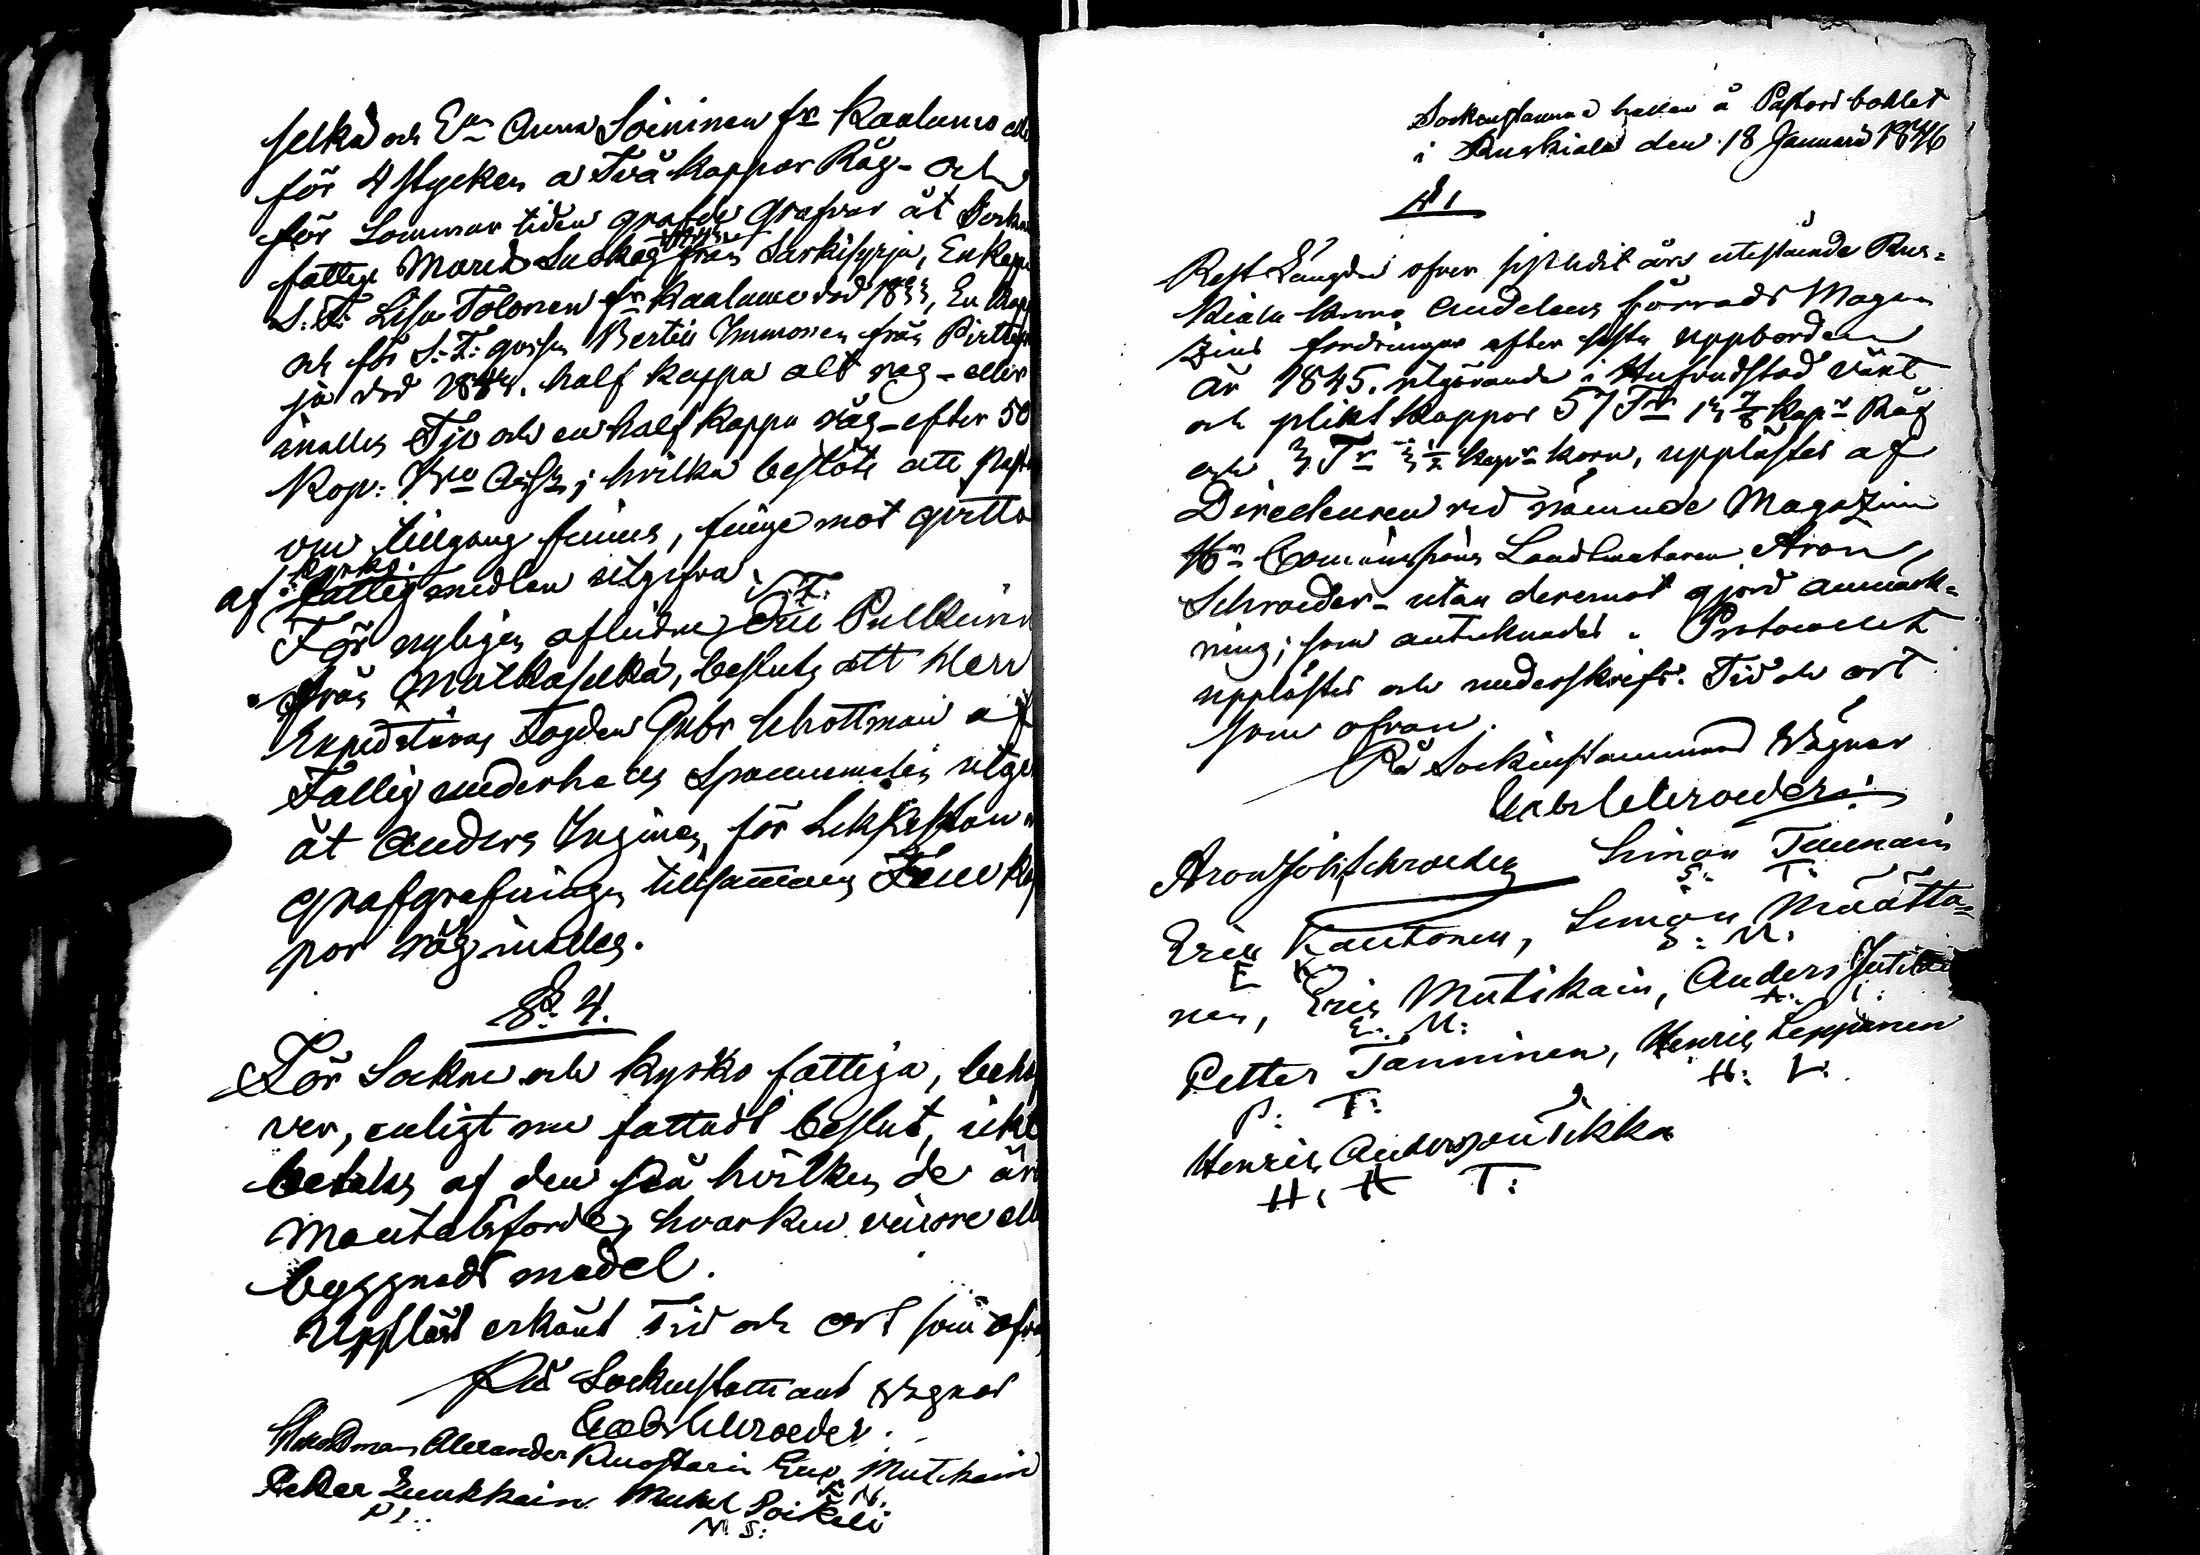 selkä och Enk. Anna Soininen fr Kaalamo
för 4 stycken a Två kappor Råg- och
för Sommar tiden grafde grafvar åt Sockne
fattige från Särkisyrja, En kappe
S: F: Lisa Tolonen fr Kaalamo död 1833, En kap
och för S: F: gossen Bertil Immonen från Pirttipo
ja död 1844. half kappa alt råg- eller
inalles Tjo och en half kappa råg- efter 50
Kop: hvilka beslöts att
om tillgång finnes, finge mot qvitto
af Kyrko fattig medlen utgifva.
För nyligen aflidne S: F: Eric Pulkkin
från Matkaselkä, beslutz att Herr
Expeditions Fogden Gabr Schottman af
Fattig underhålls Spannemålen utge
åt Anders för Likkistan
grafgrafningen tillsammans Fem kap
por råg inalles.
§: 4.
För Sockne och kyrko fattiga, behö
ver, enligt nu fattadt beslut, icke
betalas af den på hvilken de äro
Mantalsförde, hvarken eller
byggnads medel.
Uppläst erkänt Tid och ort som ofvan
På Sockenstammans Vägnar
Gabr Schroeder.
Alexander Ruostari Eric Mutikain
E. M.
Petter Michel Poikeli
M. S:
Sockenstamma hållen å Pastors bohlet
i Ruskiala den 18 Januari 1846
§ 1
Rest Längden öfver sistledit års utestående Rus=
kiala krono andelens förråds Maga
zins fordringar efter sista uppbörden
år 1845. utgörande i Hufvudstad växt
och plikt kappor 57 Tr 13 7/8 kapr Råg
och 3 Tr kapr korn, upplästes af
Directeuren vid nämnde Magazin
Hr Commissions Landtmätaren Aron
Schroeder- utan deremot gjord anmärk=
ning; som antecknades i Protocollet
upplästes och underskrefs. Tid och ort
som ofvan.
På Sockenstammans Vägnar
Gabr Schroeder:
Aron Joh Schroeder Simon Tiainain
S: T:
Eric Kautonen, Simon Määttä=
E K S: M:
nen, Eric Mutikain, Anders Jutilai
E: M: A: I:
Petter Tanninen, Henric Leppänen
P: T: H: L:
Henric Andersson Tikka
H: A T: